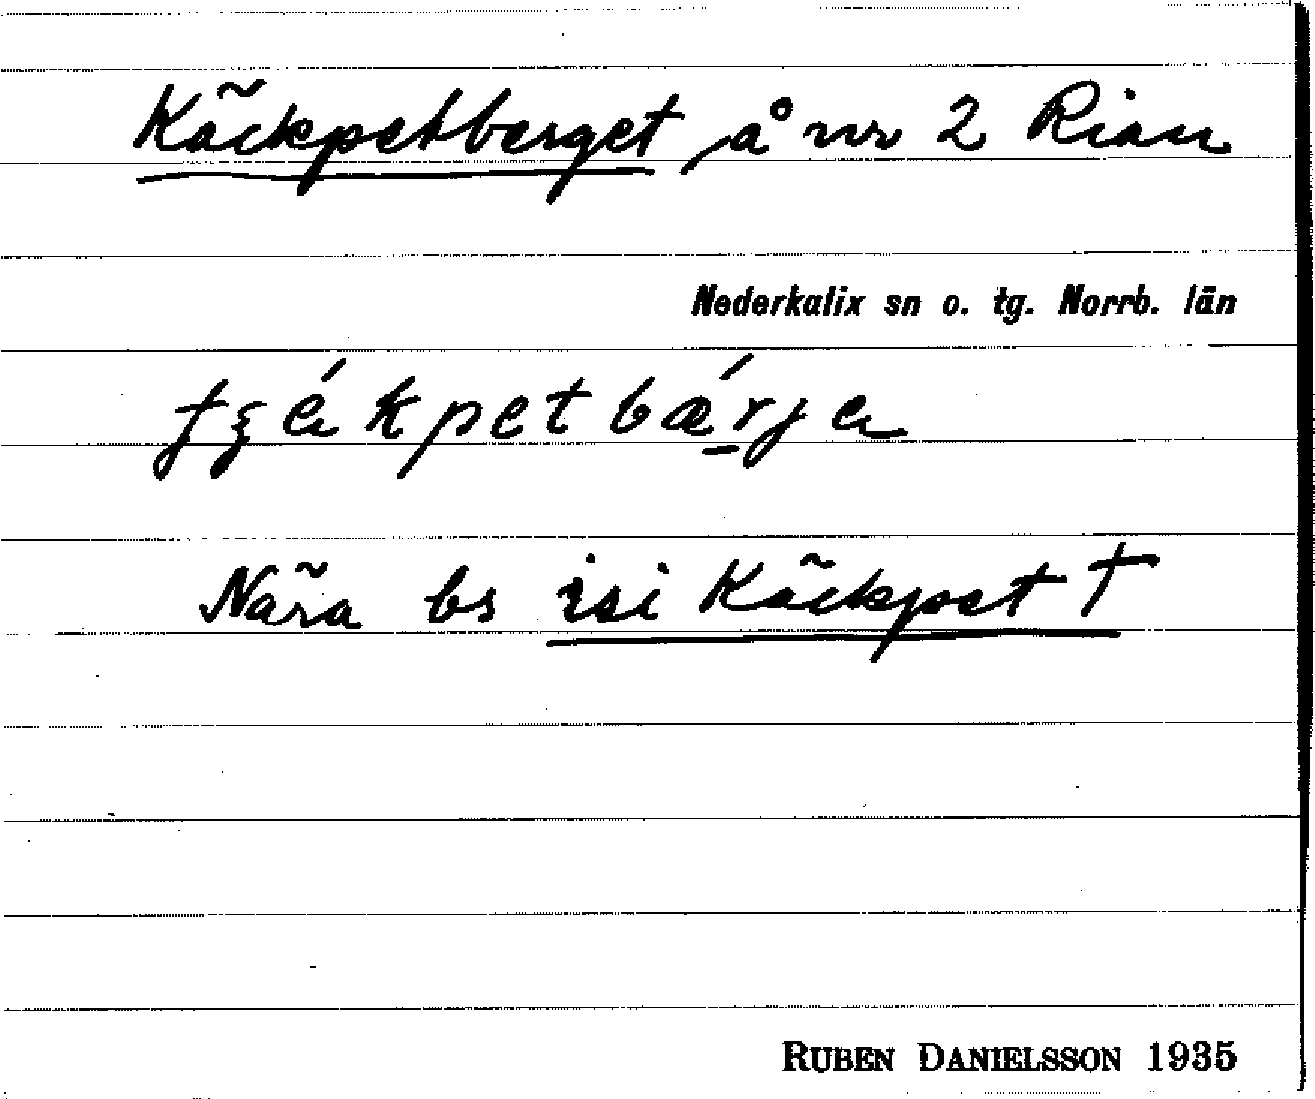 Käckpetberget, å nr 2 Rian
Nederkalix sn o. tg. Norrb. län
Nära bs isi Käckpet †
RUBEN DANIELSSON 1935